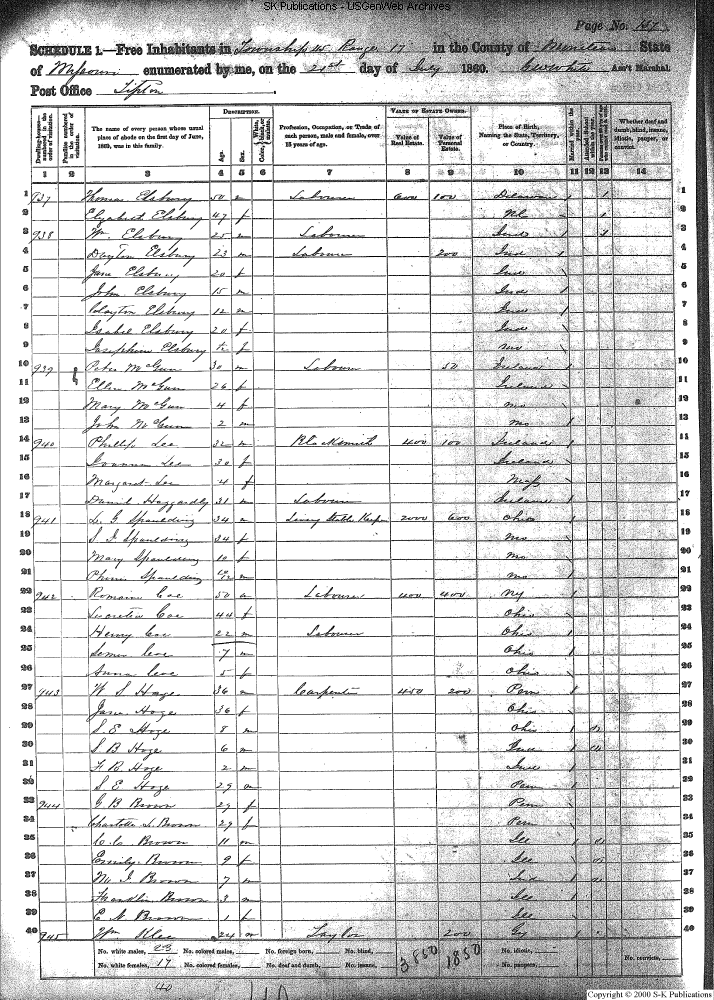 SK Publications - USGenWeb Archives
Page No. 147
SCHEDULE 1.—Free Inhabitants in Township 45 Range 17 in the County of State
of Missouri enumerated by me, on the 21st day of July 1860. Ass't Marshal.
Post Office Tipton
Dwelling-houses—numbered in the order of visitation.
Families numbered in the order of visitation.
The name of every person whose usual place of abode on the first day of June, 1860, was in this family.
DESCRIPTION.
Age.
Sex.
Color, White, black, or mulatto.
Profession, Occupation, or Trade of each person, male and female, over 15 years of age.
VALUE OF ESTATE OWNED.
Value of Real Estate.
Value of Personal Estate.
Place of Birth, Naming the State, Territory, or Country.
Married within the year.
Whether deaf and dumb, blind, insane, idiotic, pauper, or convict.
1 2 3 4 5 6 7 8 9 10 11 12 13 14
1 937 Thomas Elsbury 50 m Labourer 600 100 Delaware / 1
2 Elizabeth Elsbury 47 f 2
3 938 Wm Elsbury 25 m Labourer Ind / 3
4 Dayton Elsbury 23 m Labourer 200 Ind 4
5 Jane Elsbury 20 f Ind 5
6 John Elsbury 15 m Ind 6
7 Clayton Elsbury 12 m Ind 7
8 Isabel Elsbury 20 f Ind 8
9 Josephine Elsbury f Mo 9
10 939 Peter McGun 30 m Labourer 50 Ireland 10
11 Ellen McGun 26 f Ireland 11
12 Mary McGun 4 f Mo 12
13 John McGun 2 m Mo 13
14 940 Phillip Lee 32 m Blacksmith 400 100 Ireland 14
15 Lee 30 f Ireland 15
16 Margaret Lee 4 f Mass 16
17 Daniel Haggardly 31 m Labourer Ireland 17
18 941 L G Spaulding 34 m Livery Stable Keeper 2000 600 Ohio 18
19 S J Spaulding 24 f Mo 19
20 Mary Spaulding 10 f Mo 20
21 Spaulding m Mo 21
22 942 Romain Coe 50 m Labourer 400 400 NY 22
23 Lucretia Coe 44 f Ohio 23
24 Henry Coe 22 m Labourer Ohio 24
25 Coe 7 m Ohio 25
26 Anna Coe 5 f Ohio 26
27 943 W S Hoge 36 m Carpenter 450 200 Penn 27
28 Jane Hoge 36 f Ohio 28
29 S E Hoge 8 m Ohio 29
30 S B Hoge 6 m Ind 30
31 F R Hoge 2 m Ind 31
32 S E Hoge 29 m Penn 32
33 944 G B Brown 29 f Penn 33
34 Charlotte S. Brown 29 f Penn 34
35 C C Brown 11 m Ill 35
36 Emily Brown 9 f Ill 36
37 M J Brown 7 m Ind 37
38 Franklin Brown 3 m Ill 38
39 E N Brown 1 f Ill 39
40 945 Wm Klee 24 m Taylor 200 40
No. white males, 23 No. colored males, No. foreign born, No. blind, 3850 1850 No. idiotic,
No. white females, 17 No. colored females, No. deaf and dumb, No. insane, No. paupers, No. convicts,
40
Copyright © 2000 S-K Publications